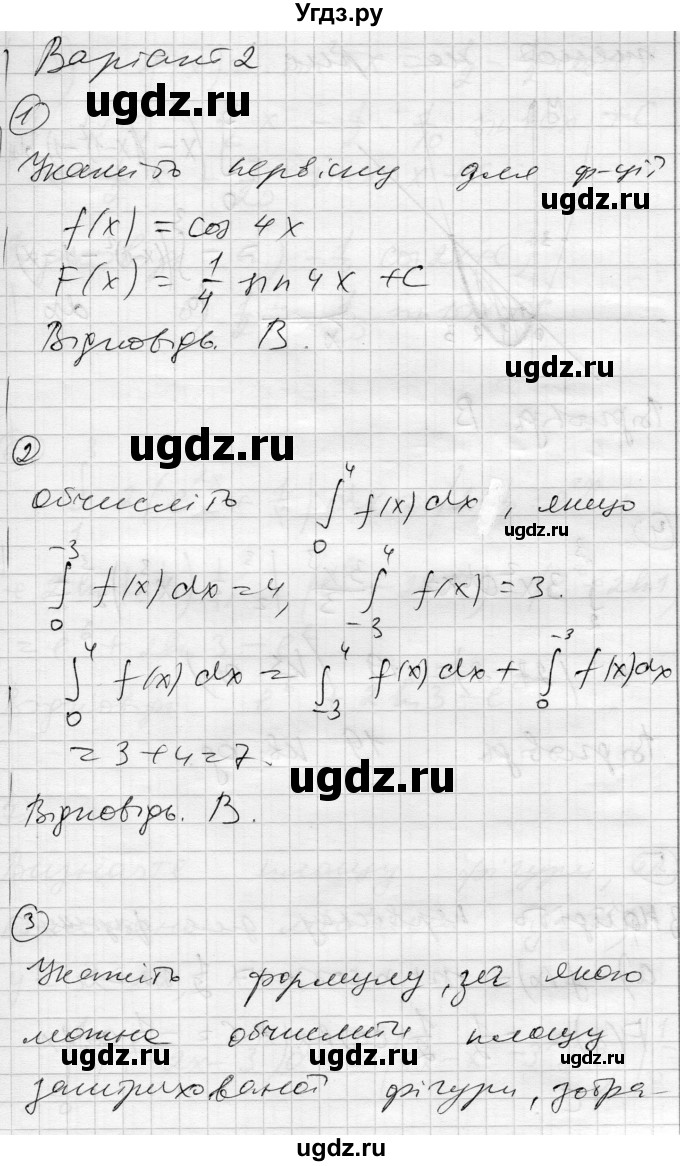 Угдз.ру
Варіант 2
ugdz.ru
1
Укажіть первісну для ф-ції
ugdz.ru
f(x) = cos 4x
F(x) = 1/4 sin 4x + C
Відповідь. В.
ugdz.ru
ugdz.ru
2
обчисліть ∫₀⁴ f(x) dx, якщо
ugdz.ru
∫₀⁻³ f(x) dx = 4, ∫₋₃⁴ f(x) = 3.
∫₀⁴ f(x) dx = ∫₋₃⁴ f(x) dx + ∫₀⁻³ f(x) dx
= 3 + 4 = 7.
ugdz.ru
Відповідь. В.
3
Укажіть формулу, за якою
можна обчислити площу
ugdz.ru ugdz.ru ugdz.ru
заштрихованої фігури, зобра-
ugdz.ru